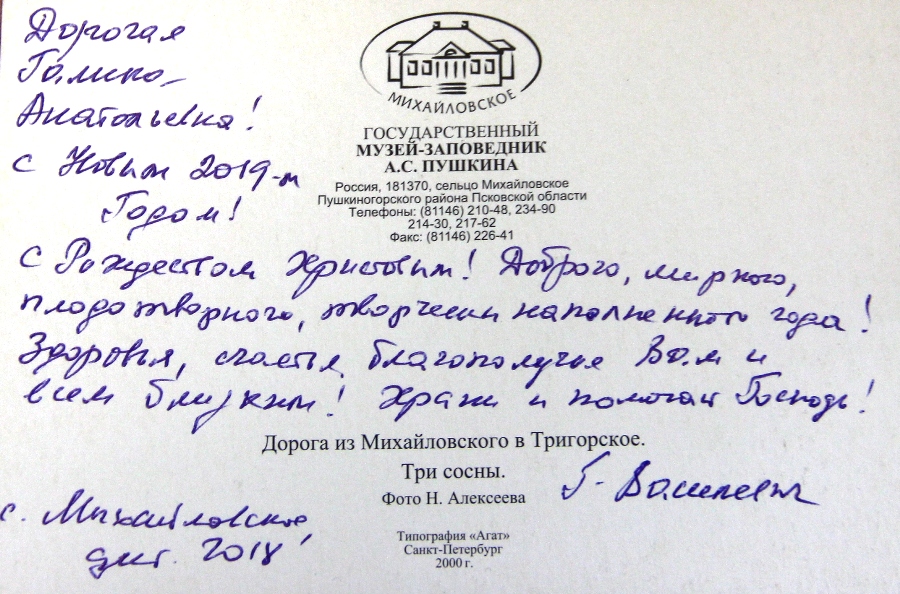 Дорогая
Галина
Анатольевна!
с Новым 2019-м
Годом!
МИХАЙЛОВСКОЕ
ГОСУДАРСТВЕННЫЙ
МУЗЕЙ-ЗАПОВЕДНИК
А.С. ПУШКИНА
Россия, 181370, сельцо Михайловское
Пушкиногорского района Псковской области
Телефоны: (81146) 210-48, 234-90
214-30, 217-62
Факс: (81146) 226-41
С Рождеством Христовым! Доброго, мирного,
плодотворного, творчески наполненного года!
Здоровья, счастья, благополучия Вам и
всем близким! Храни и помогай Господь!
Дорога из Михайловского в Тригорское.
Три сосны.
Фото Н. Алексеева
Г. Василевич
с. Михайловское,
дек. 2018
Типография «Агат»
Санкт-Петербург
2000 г.